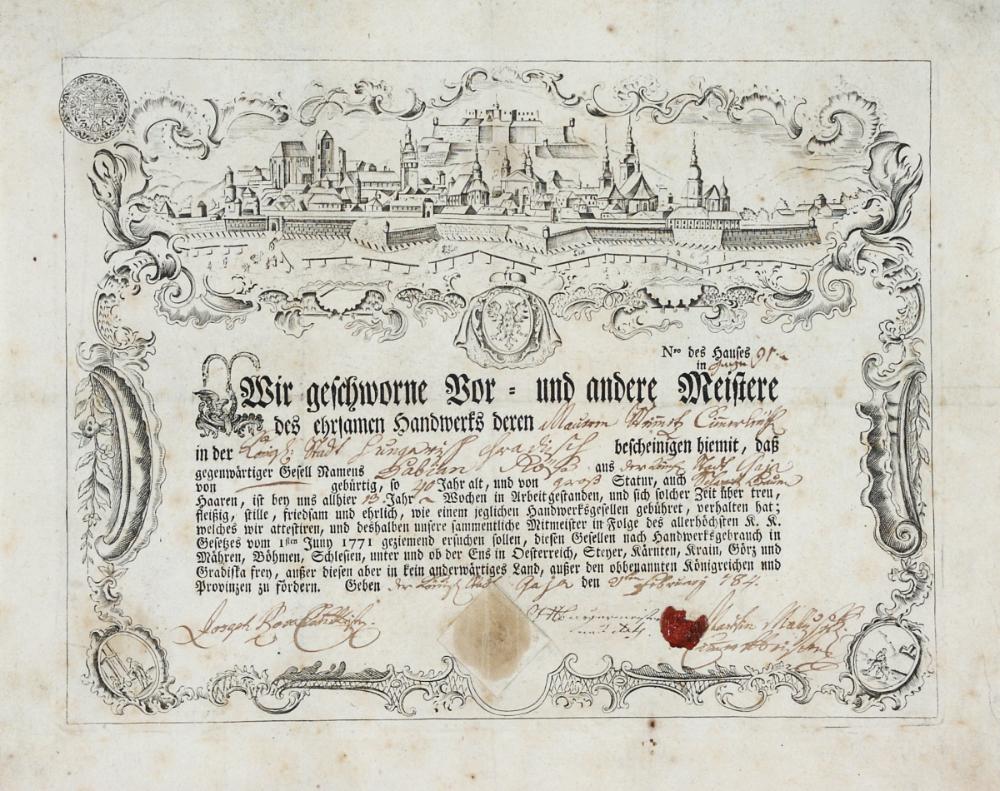 Nro des Hauses 91.
in
Wir geschworne Vor = und andere Meistere
des ehrsamen Handwerks deren Maurern
in der Königl: Stadt Hungarisch Hradisch bescheinigen hiemit, daß
gegenwärtiger Gesell Namens Fabian aus der Stadt Gaja
von gebürtig, so 40 Jahr alt, und von groß Statur, auch Braun
Haaren, ist bey uns allhier 13 Jahr Wochen in Arbeit gestanden, und sich solcher Zeit über treu,
fleißig, stille, friedsam und ehrlich, wie einem jeglichen Handwerksgesellen gebühret, verhalten hat;
welches wir attestiren, und deshalben unsere sammentliche Mitmeister in Folge des allerhöchsten K. K.
Gesetzes vom 1sten Juny 1771 geziemend ersuchen sollen, diesen Gesellen nach Handwerksgebrauch in
Mähren, Böhmen, Schlesien, unter und ob der Ens in Oesterreich, Steyer, Kärnten, Krain, Görz und
Gradiska frey, außer diesen aber in kein anderwärtiges Land, außer den obbenannten Königreichen und
Provinzen zu fördern. Geben Stadt Gaja den 784.
Joseph
Martin